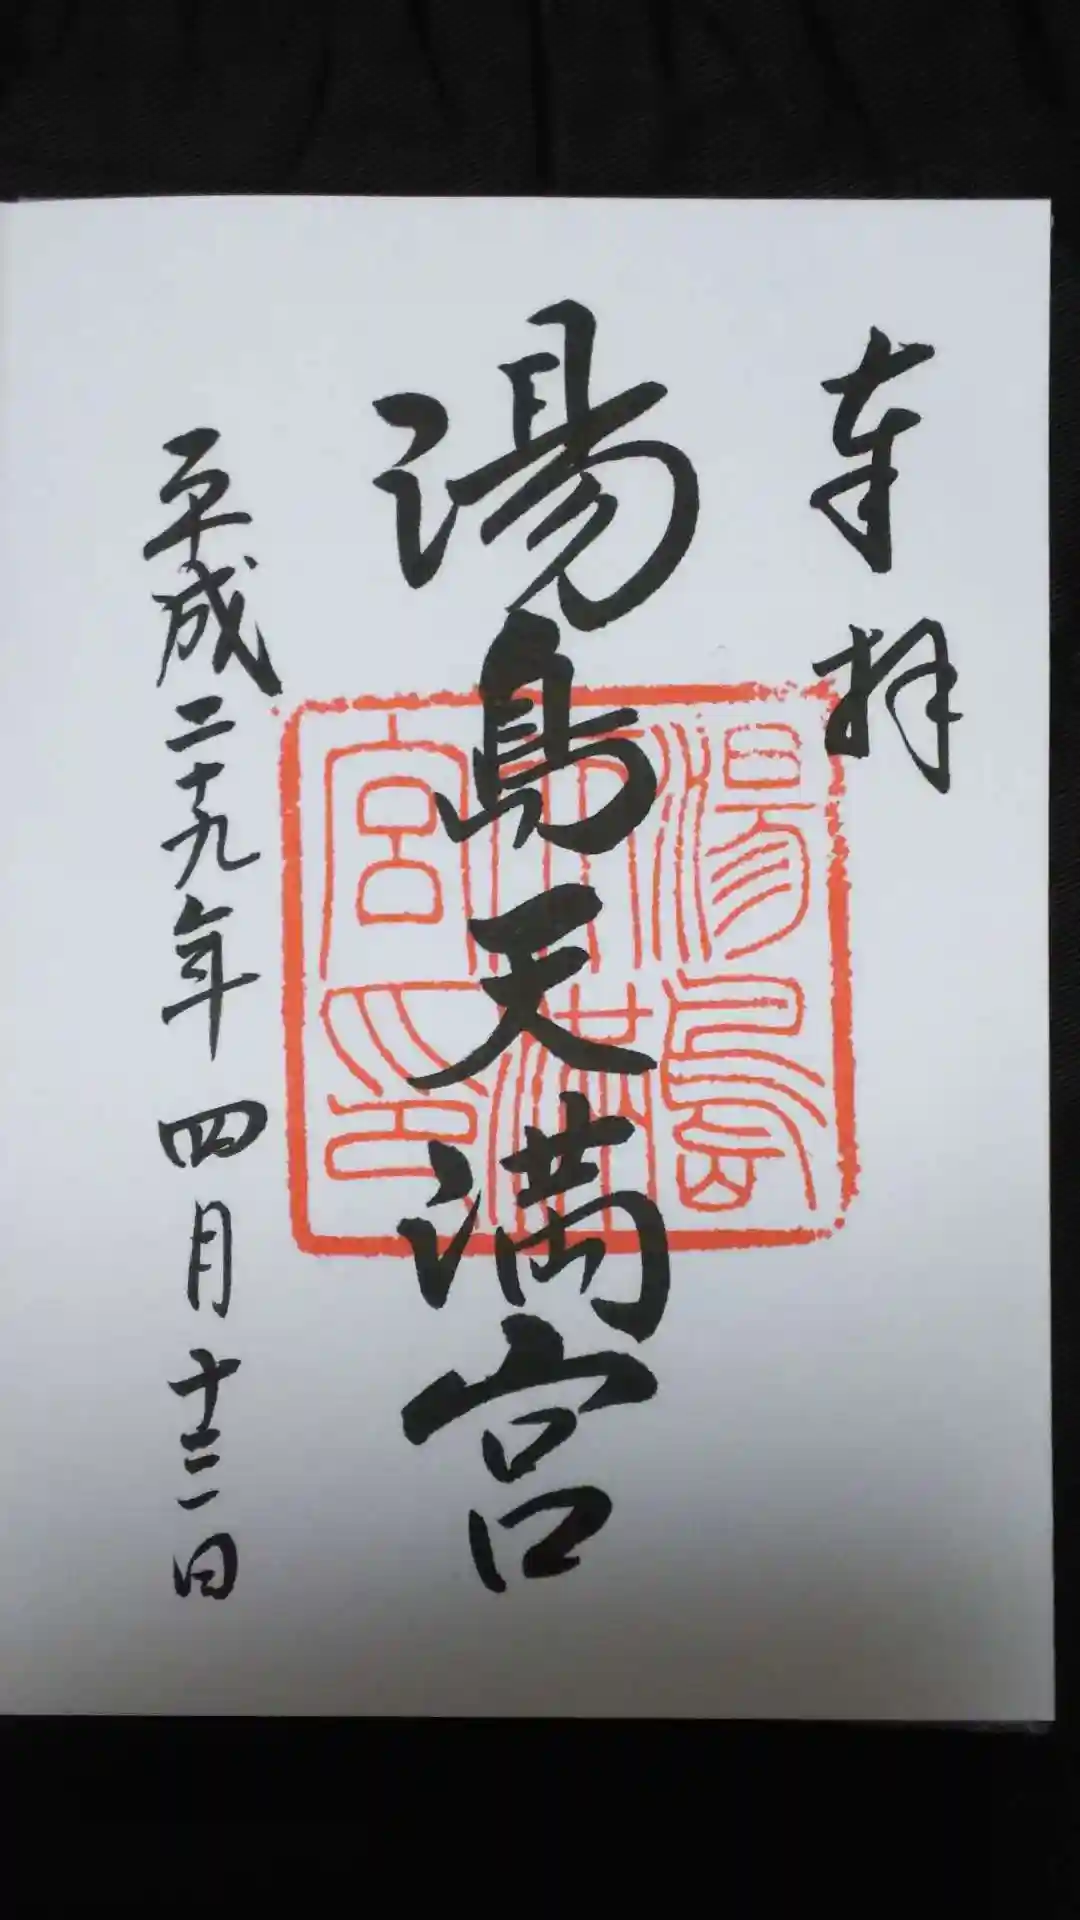 奉拝
湯島天満宮
平成二十九年四月十三日
湯島
天満
宮印